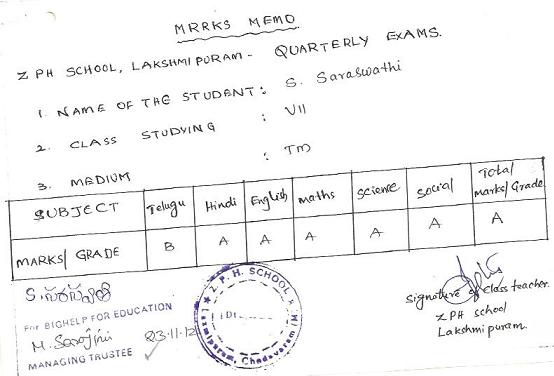 MRRKS MEMO
Z PH SCHOOL, LAKSHMIPURAM - QUARTERLY EXAMS.
1. NAME OF THE STUDENT: S. Saraswathi
2. CLASS STUDYING : VII
3. MEDIUM : TM
SUBJECT Telugu Hindi English maths Science Social Total/ marks/Grade
MARKS/ GRADE B A A A A A A
S. సరస్వతి
For BIGHELP FOR EDUCATION
M. Sarojini 23.11.12
MANAGING TRUSTEE
Z. P. H. SCHOOL
Laxmipuram, Chodavaram
Signature of Class teacher.
ZPH school
Lakshmipuram.